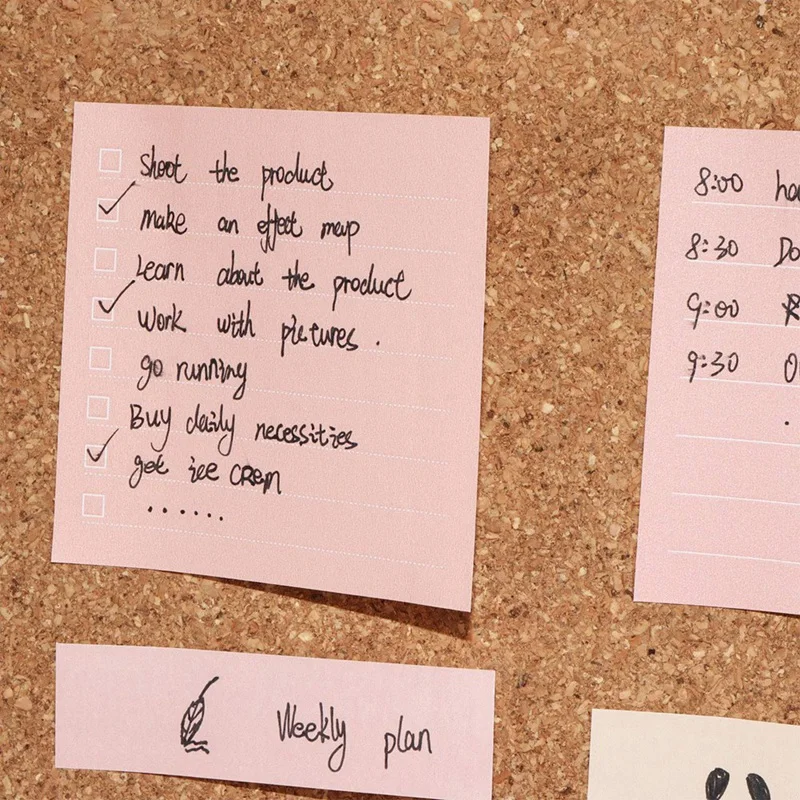 Shoot the product
make an effect
Learn about the product
Work with pictures .
go running
Buy daily necessities
get ice cream
......
Weekly plan
8:00
8:30 Do
9:00
9:30